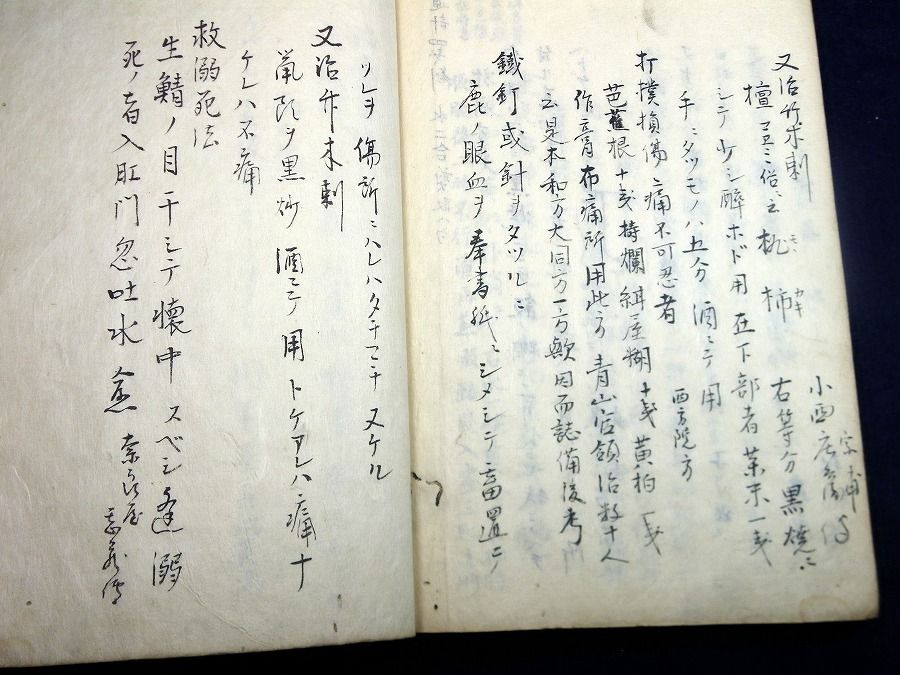 又治竹木刺
小西
檀 豆ミ俗ニ云 桃 モヽ 柿 カキ 右等分黒焼ニ
シテ少シ酔ホド用 在下部者 茶末一戔
手ニタツモノハ五分 酒ニテ用
打撲損傷痛不可忍者 西方院方
芭蕉根十戔 擣爛 糊 十戔 黄柏 一戔
作膏布痛所用此方 青山 治数十人
云是本和方大同方一方歟因而誌備後考
鐵釘或針ヲタツルニ
鹿ノ眼血ヲ奉書紙ニシメシテ畜置ニテ
ソレヲ傷所ニハレハタチマチヌケル
又治竹木刺
黒炒酒ニテ用 トケアレハ痛ナ
ケレハ不痛
救溺死法
生鯖ノ目干シテ懐中スベシ逢溺
死ノ者入肛門忽吐水愈 奈良屋